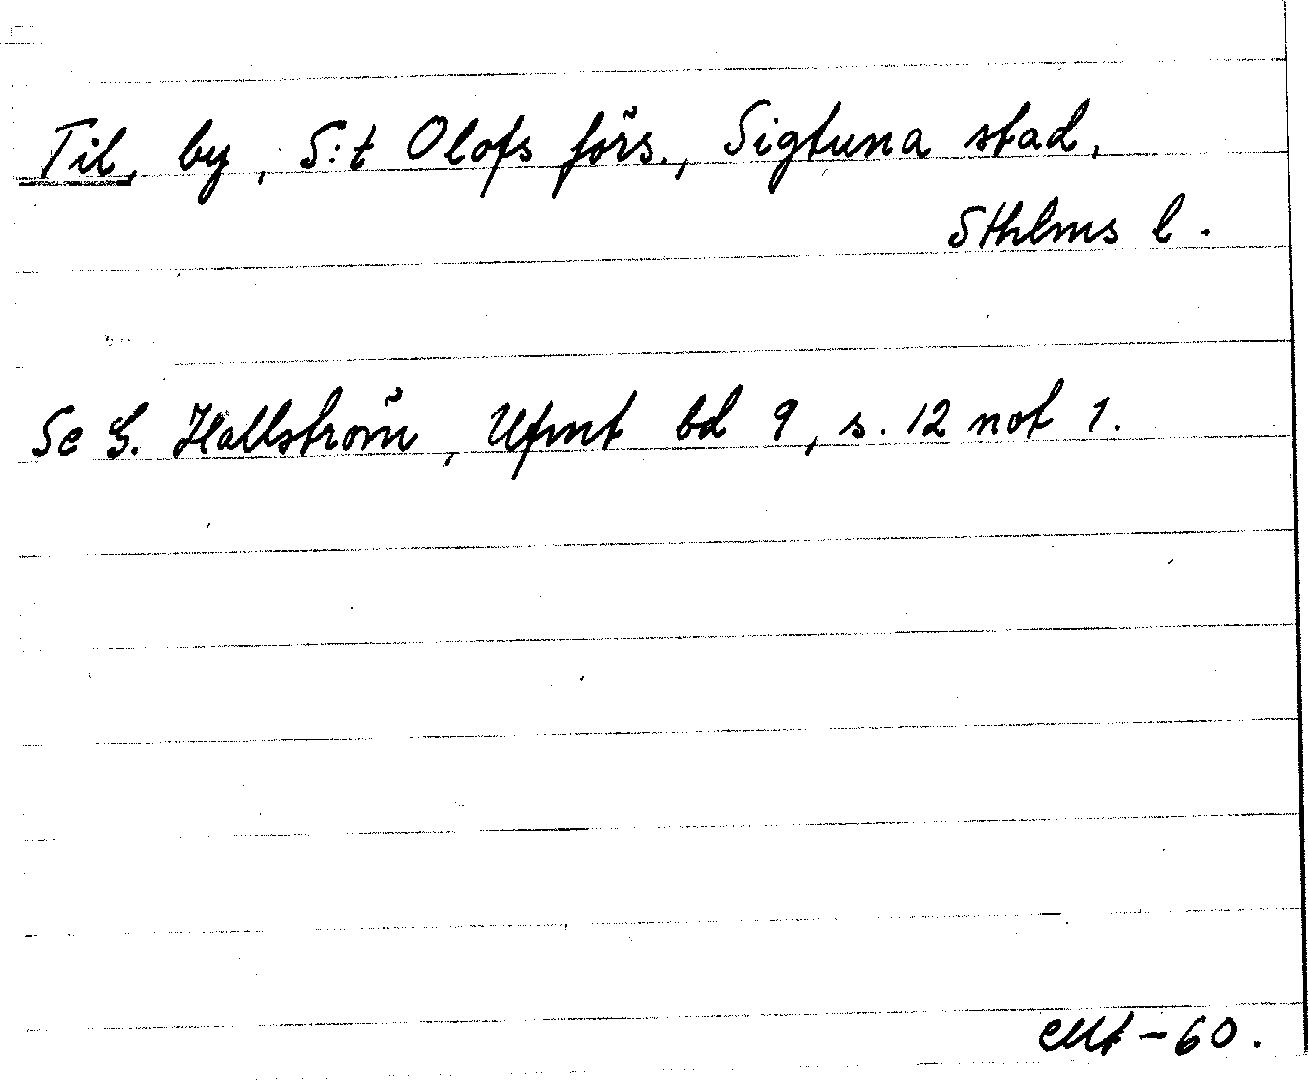 Til, by, S:t Olofs förs., Sigtuna stad,
Sthlms l.
Se G. Hallström, Ufmt bd 9, s. 12 not 1.
-60.